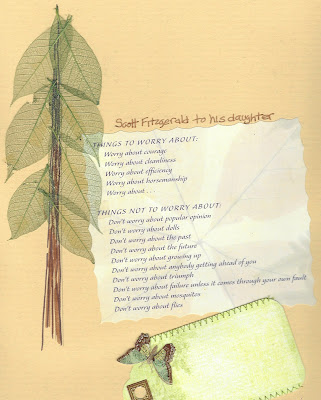 Scott Fitzgerald to his daughter
THINGS TO WORRY ABOUT:
Worry about courage
Worry about cleanliness
Worry about efficiency
Worry about horsemanship
Worry about . . .
THINGS NOT TO WORRY ABOUT:
Don't worry about popular opinion
Don't worry about dolls
Don't worry about the past
Don't worry about the future
Don't worry about growing up
Don't worry about anybody getting ahead of you
Don't worry about triumph
Don't worry about failure unless it comes through your own fault
Don't worry about mosquitos
Don't worry about flies